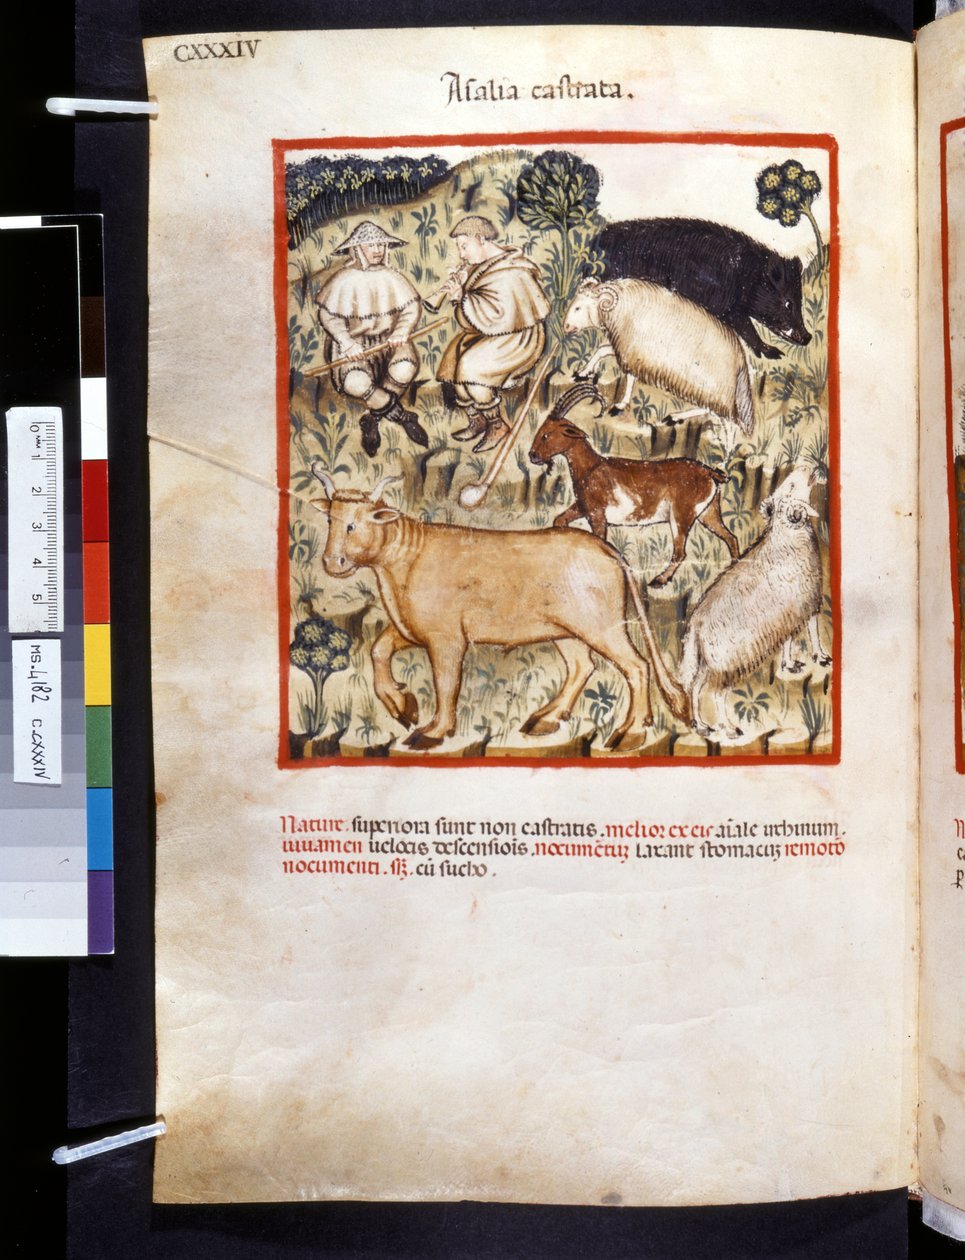 CXXXIV
Asalia castrata.
Nature. superiora sunt non castratis. melior ex eis aīale urbinum.
iuuamen uelocis descensiōis. nocumētuꝫ laxant stomacuꝫ remotō
nocumenti. sꝫ. cū sucho.
0 mm 1 2 3 4 5
MS. 4182 C. CXXXIV